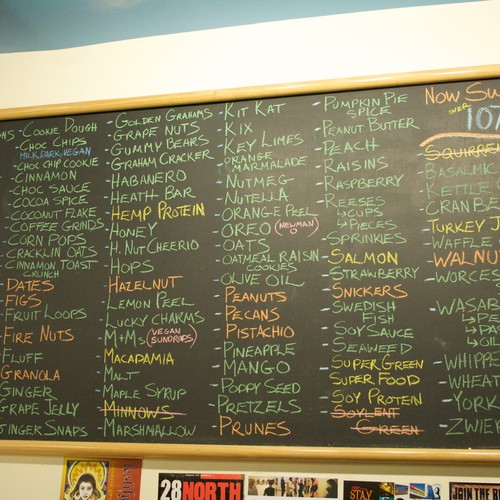 - COOKIE DOUGH
- CHOC CHIPS
MILK, DARK, VEGAN
- CHOC CHIP COOKIE
CINNAMON
- CHOC SAUCE
COCOA SPICE
COCONUT FLAKE
COFFEE GRINDS
- CORN POPS
CRACKLIN OATS
- CINNAMON TOAST
CRUNCH
- DATES
- FIGS
- FRUIT LOOPS
- FIRE NUTS
- FLUFF
GRANOLA
GINGER
GRAPE JELLY
GINGER SNAPS
- GOLDEN GRAHAMS
- GRAPE NUTS
- GUMMY BEARS
- GRAHAM CRACKER
- HABANERO
- HEATH BAR
- HEMP PROTEIN
- HONEY
- H. NUT CHEERIO
- HOPS
- HAZELNUT
- LEMON PEEL
- LUCKY CHARMS
- M+MS (VEGAN
SUNDROPS)
- MACADAMIA
- MALT
- MAPLE SYRUP
- MINNOWS
- MARSHMALLOW
- KIT KAT
- KIX
- KEY LIMES
- ORANGE
MARMALADE
- NUTMEG
- NUTELLA
- ORANGE PEEL
- OREO (NEWMAN
O)
- OATS
- OATMEAL RAISIN
COOKIES
- OLIVE OIL
- PEANUTS
- PECANS
- PISTACHIO
- PINEAPPLE
- MANGO
- POPPY SEED
- PRETZELS
- PRUNES
- PUMPKIN PIE
SPICE
- PEANUT BUTTER
- PEACH
- RAISINS
- RASPBERRY
- REESES
↳ CUPS
↳ PIECES
- SPRINKLES
- SALMON
- STRAWBERRY
- SNICKERS
- SWEDISH
FISH
- SOY SAUCE
- SEAWEED
- SUPER GREEN
- SUPER FOOD
- SOY PROTEIN
- SOYLENT
GREEN
NOW
OVER
- TURKEY J
- WAFFLE
- WALNU
- WORCES
- WASAB
- WHIPPE
- WHEAT
- YORK
- ZWIE
28 NORTH
STAY
JOIN THE